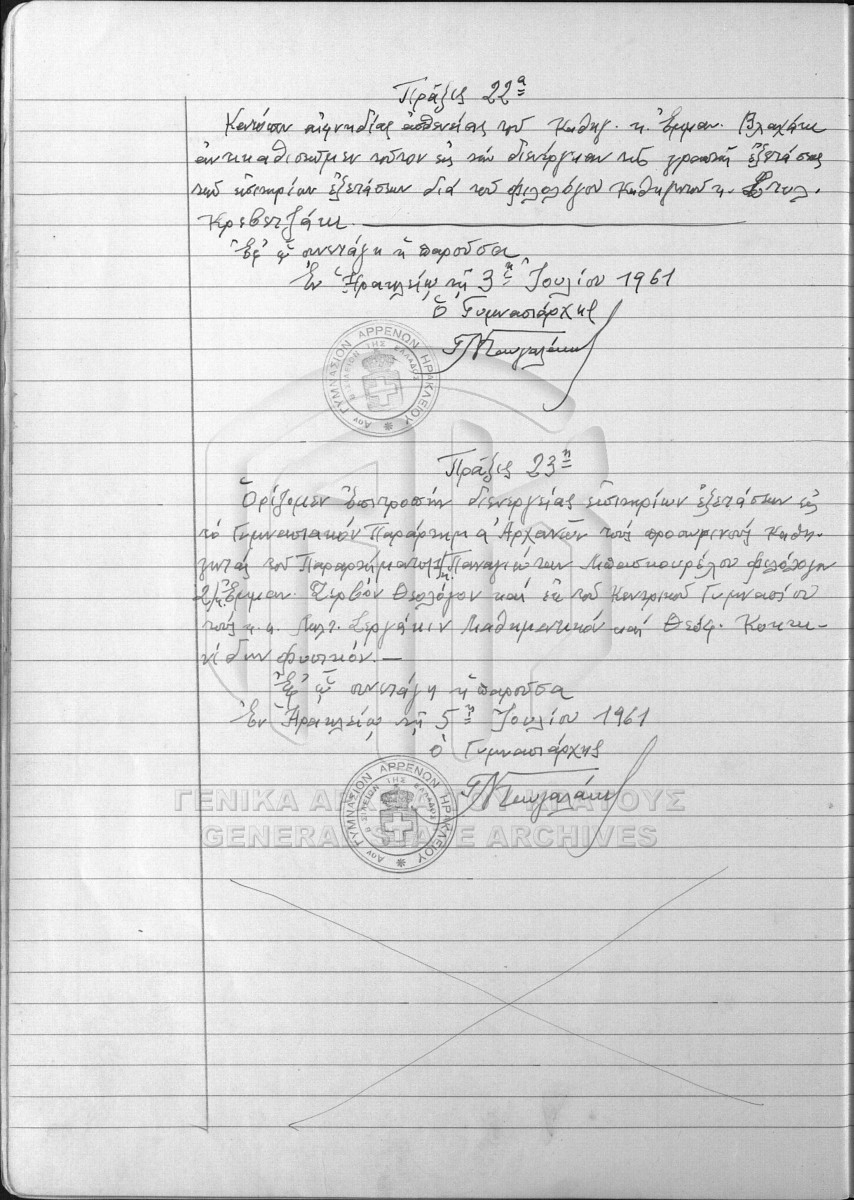 Πρᾶξις 22α
Κατόπιν αἰφνηδίας ἀσθενείας τοῦ καθηγ. κ. Ἐμμαν. Βλαχάκη
ἀντικαθιστῶμεν τοῦτον εἰς τὴν διενέργειαν τῆς γραπτῆς ἐξετάσεως
τῶν εἰσιτηρίων ἐξετάσεων διὰ τοῦ φιλολόγου καθηγητοῦ κ. Στυλ.
Κρεβετζάκη.
Ἐφ' ᾧ συνετάγη ἡ παροῦσα
Ἐν Ἡρακλείῳ τῇ 3ῃ Ἰουλίου 1961
Ὁ Γυμνασιάρχης
Αον ΓΥΜΝΑΣΙΟΝ ΑΡΡΕΝΩΝ ΗΡΑΚΛΕΙΟΥ
ΒΑΣΙΛΕΙΟΝ ΤΗΣ ΕΛΛΑΔΟΣ
Πρᾶξις 23η
Ὁρίζομεν ἐπιτροπὴν διενεργείας εἰσιτηρίων ἐξετάσεων εἰς
τὸ Γυμνασιακὸν Παράρτημα Ἀρχανῶν τοὺς προσωρινοὺς καθη-
γητὰς τοῦ Παραρτήματος 1/ κ. Παναγιώτην Μπασκουρέλου φιλόλογον
2/ κ. Ἐμμαν. Ζερβὸν Θεολόγον καὶ ἐκ τοῦ Κεντρικοῦ Γυμνασίου
τοὺς κ.κ. Μιλτ. Σεργάκιν Μαθηματικὸν καὶ Θεόφ. Κοκκι-
νίδην φυσικόν.—
Ἐφ' ᾧ συνετάγη ἡ παροῦσα
Ἐν Ἡρακλείῳ τῇ 5ῃ Ἰουλίου 1961
Ὁ Γυμνασιάρχης
Αον ΓΥΜΝΑΣΙΟΝ ΑΡΡΕΝΩΝ ΗΡΑΚΛΕΙΟΥ
ΒΑΣΙΛΕΙΟΝ ΤΗΣ ΕΛΛΑΔΟΣ
ΓΕΝΙΚΑ ΑΡΧΕΙΑ ΤΟΥ ΚΡΑΤΟΥΣ
GENERAL STATE ARCHIVES